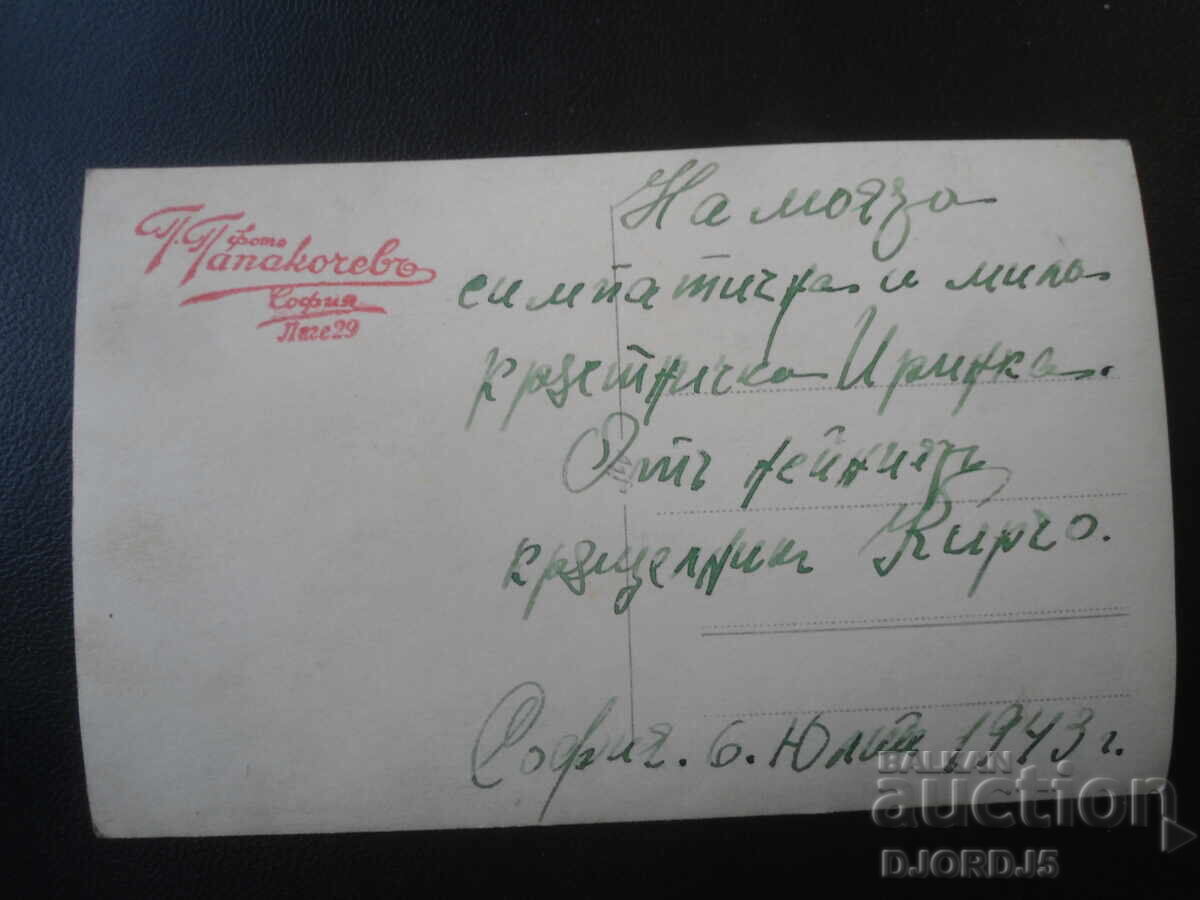 Фото
П. Папакочевъ
София
Леге 29
На моята
симпатична и мила
кръстничка Иринка.
Отъ нейния
кръщелникъ Кирчо.
София. 6. Юлий 1943 г.
BALKAN
auction
DJORDJ5